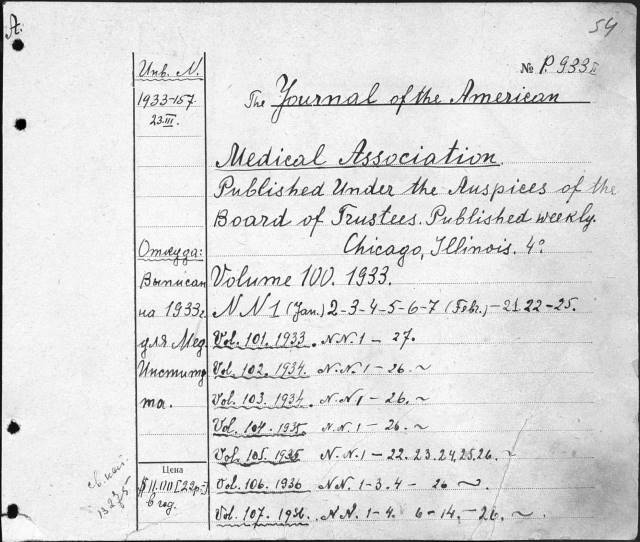 A.
54
Инв. N.
№ P. 933 II
1933-157
23.III.
The Journal of the American
Medical Association.
Published Under the Auspices of the
Board of Trustees. Published weekly.
Chicago, Illinois. 4°
Откуда:
Выписан
на 1933г.
для Мед.
Институ
та.
Volume 100. 1933.
NN 1 (Jan.) 2-3-4-5-6-7 (Febr.) - 21 22-25.
Vol. 101. 1933. NN. 1 - 27.
Vol. 102. 1934. N.N. 1 - 26. ~
Vol. 103. 1934. N.N 1 - 26. ~
Vol. 104. 1935. N.N. 1 - 26. ~
Vol. 105. 1935 N.N. 1 - 22. 23. 24. 25. 26. ~
Vol. 106. 1936 N.N. 1-3. 4 - 26 ~
Vol. 107. 1936. N.N. 1-4. 6-14, - 26. ~
Цена
$ 11.00 [22р.-]
в год.